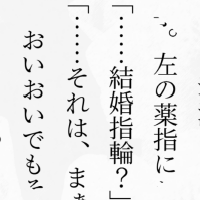 左の薬指に
「……結婚指輪？」
「……それは、ま
おいおいでも